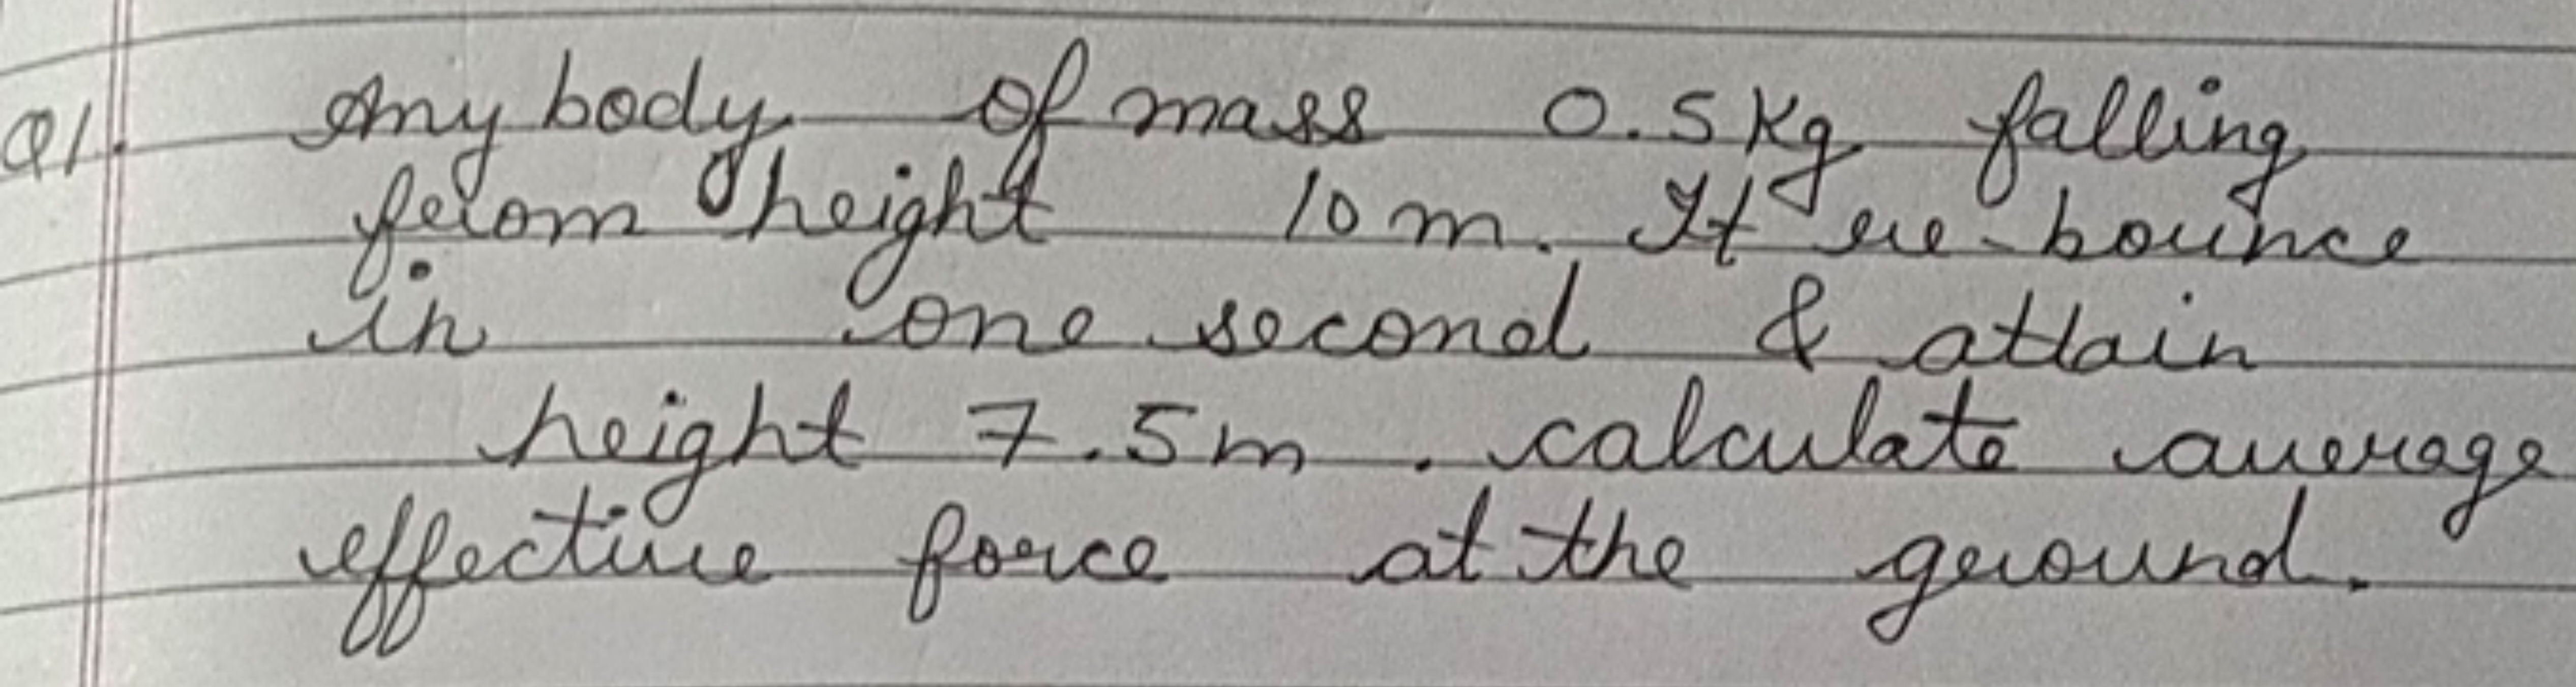 Q1. Any body of mass 0.5 kg falling
from height 10 m. It re-bounce
in one second & attain
height 7.5m. calculate average
effective force at the ground.